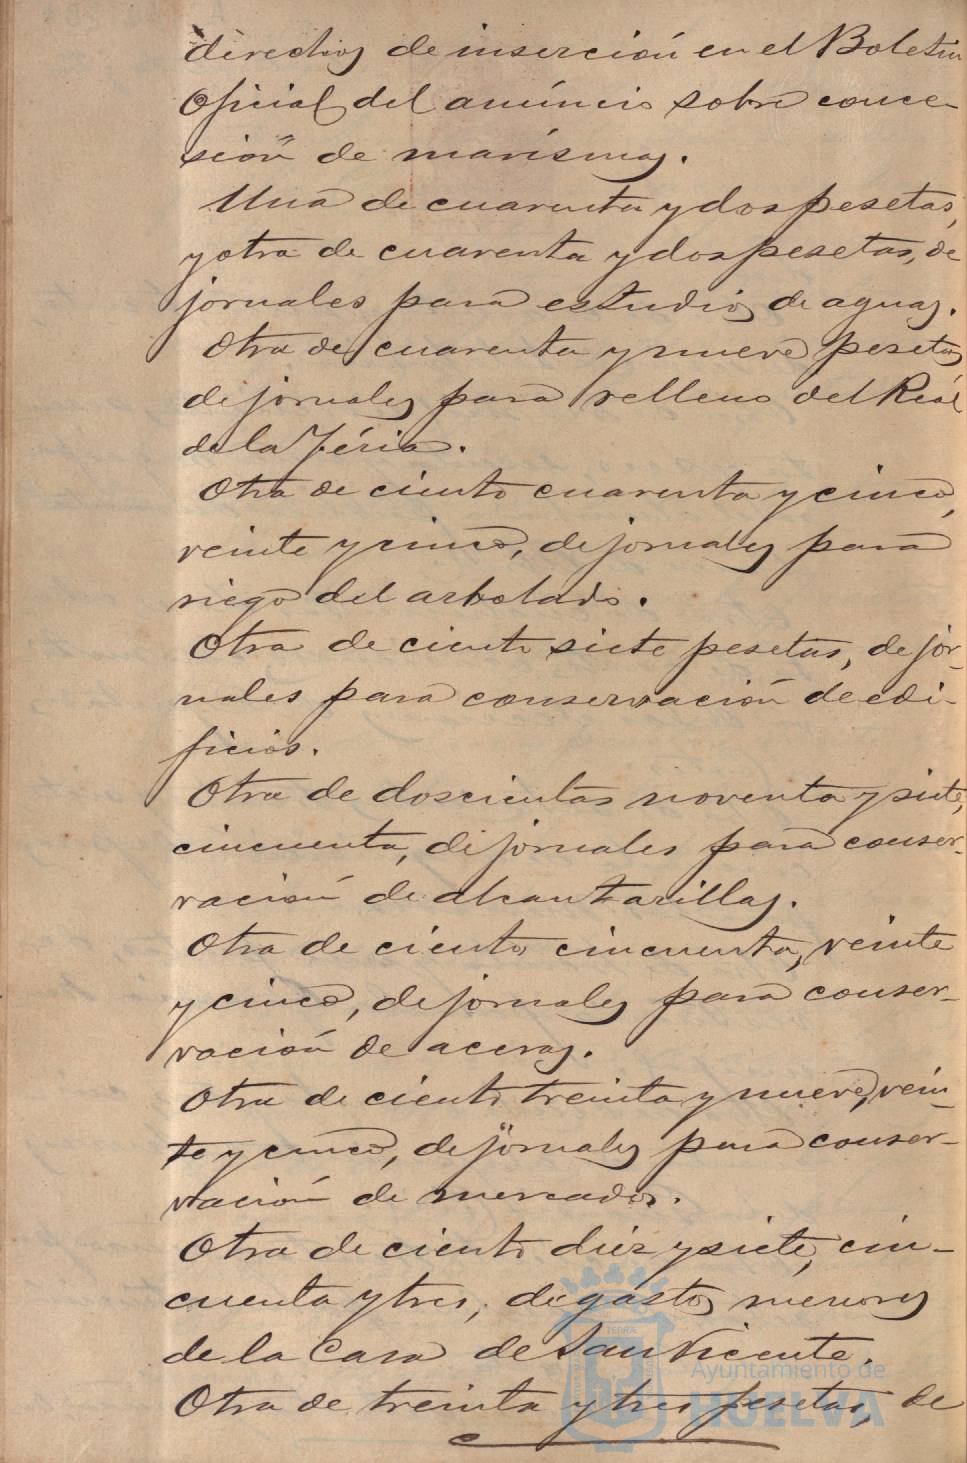 derechos de inserción en el Boletin
Oficial del anúncio sobre conce-
sión de marismas.
Una de cuarenta y dos pesetas,
y otra de cuarenta y dos pesetas, de
jornales para estudios de aguas.
Otra de cuarenta y nueve pesetas
de jornales para relleno del Real
de la Féria.
Otra de ciento cuarenta y cinco,
veinte y cinco, de jornales para
riego del arbolado.
Otra de ciento siete pesetas, de jor-
nales para conservación de edi-
ficios.
Otra de doscientas noventa y siete,
cincuenta, de jornales para conser-
vación de alcantarillas.
Otra de ciento cincuenta, veinte
y cinco, de jornales para conser-
vación de aceras.
Otra de ciento treinta y nueve, vein-
te y cinco, de jornales para conser-
vación de mercados.
Otra de ciento diez y siete, cin-
cuenta y tres, de gastos menores
de la Casa de San Vicente.
Otra de treinta y tres pesetas, de
Ayuntamiento de
HUELVA